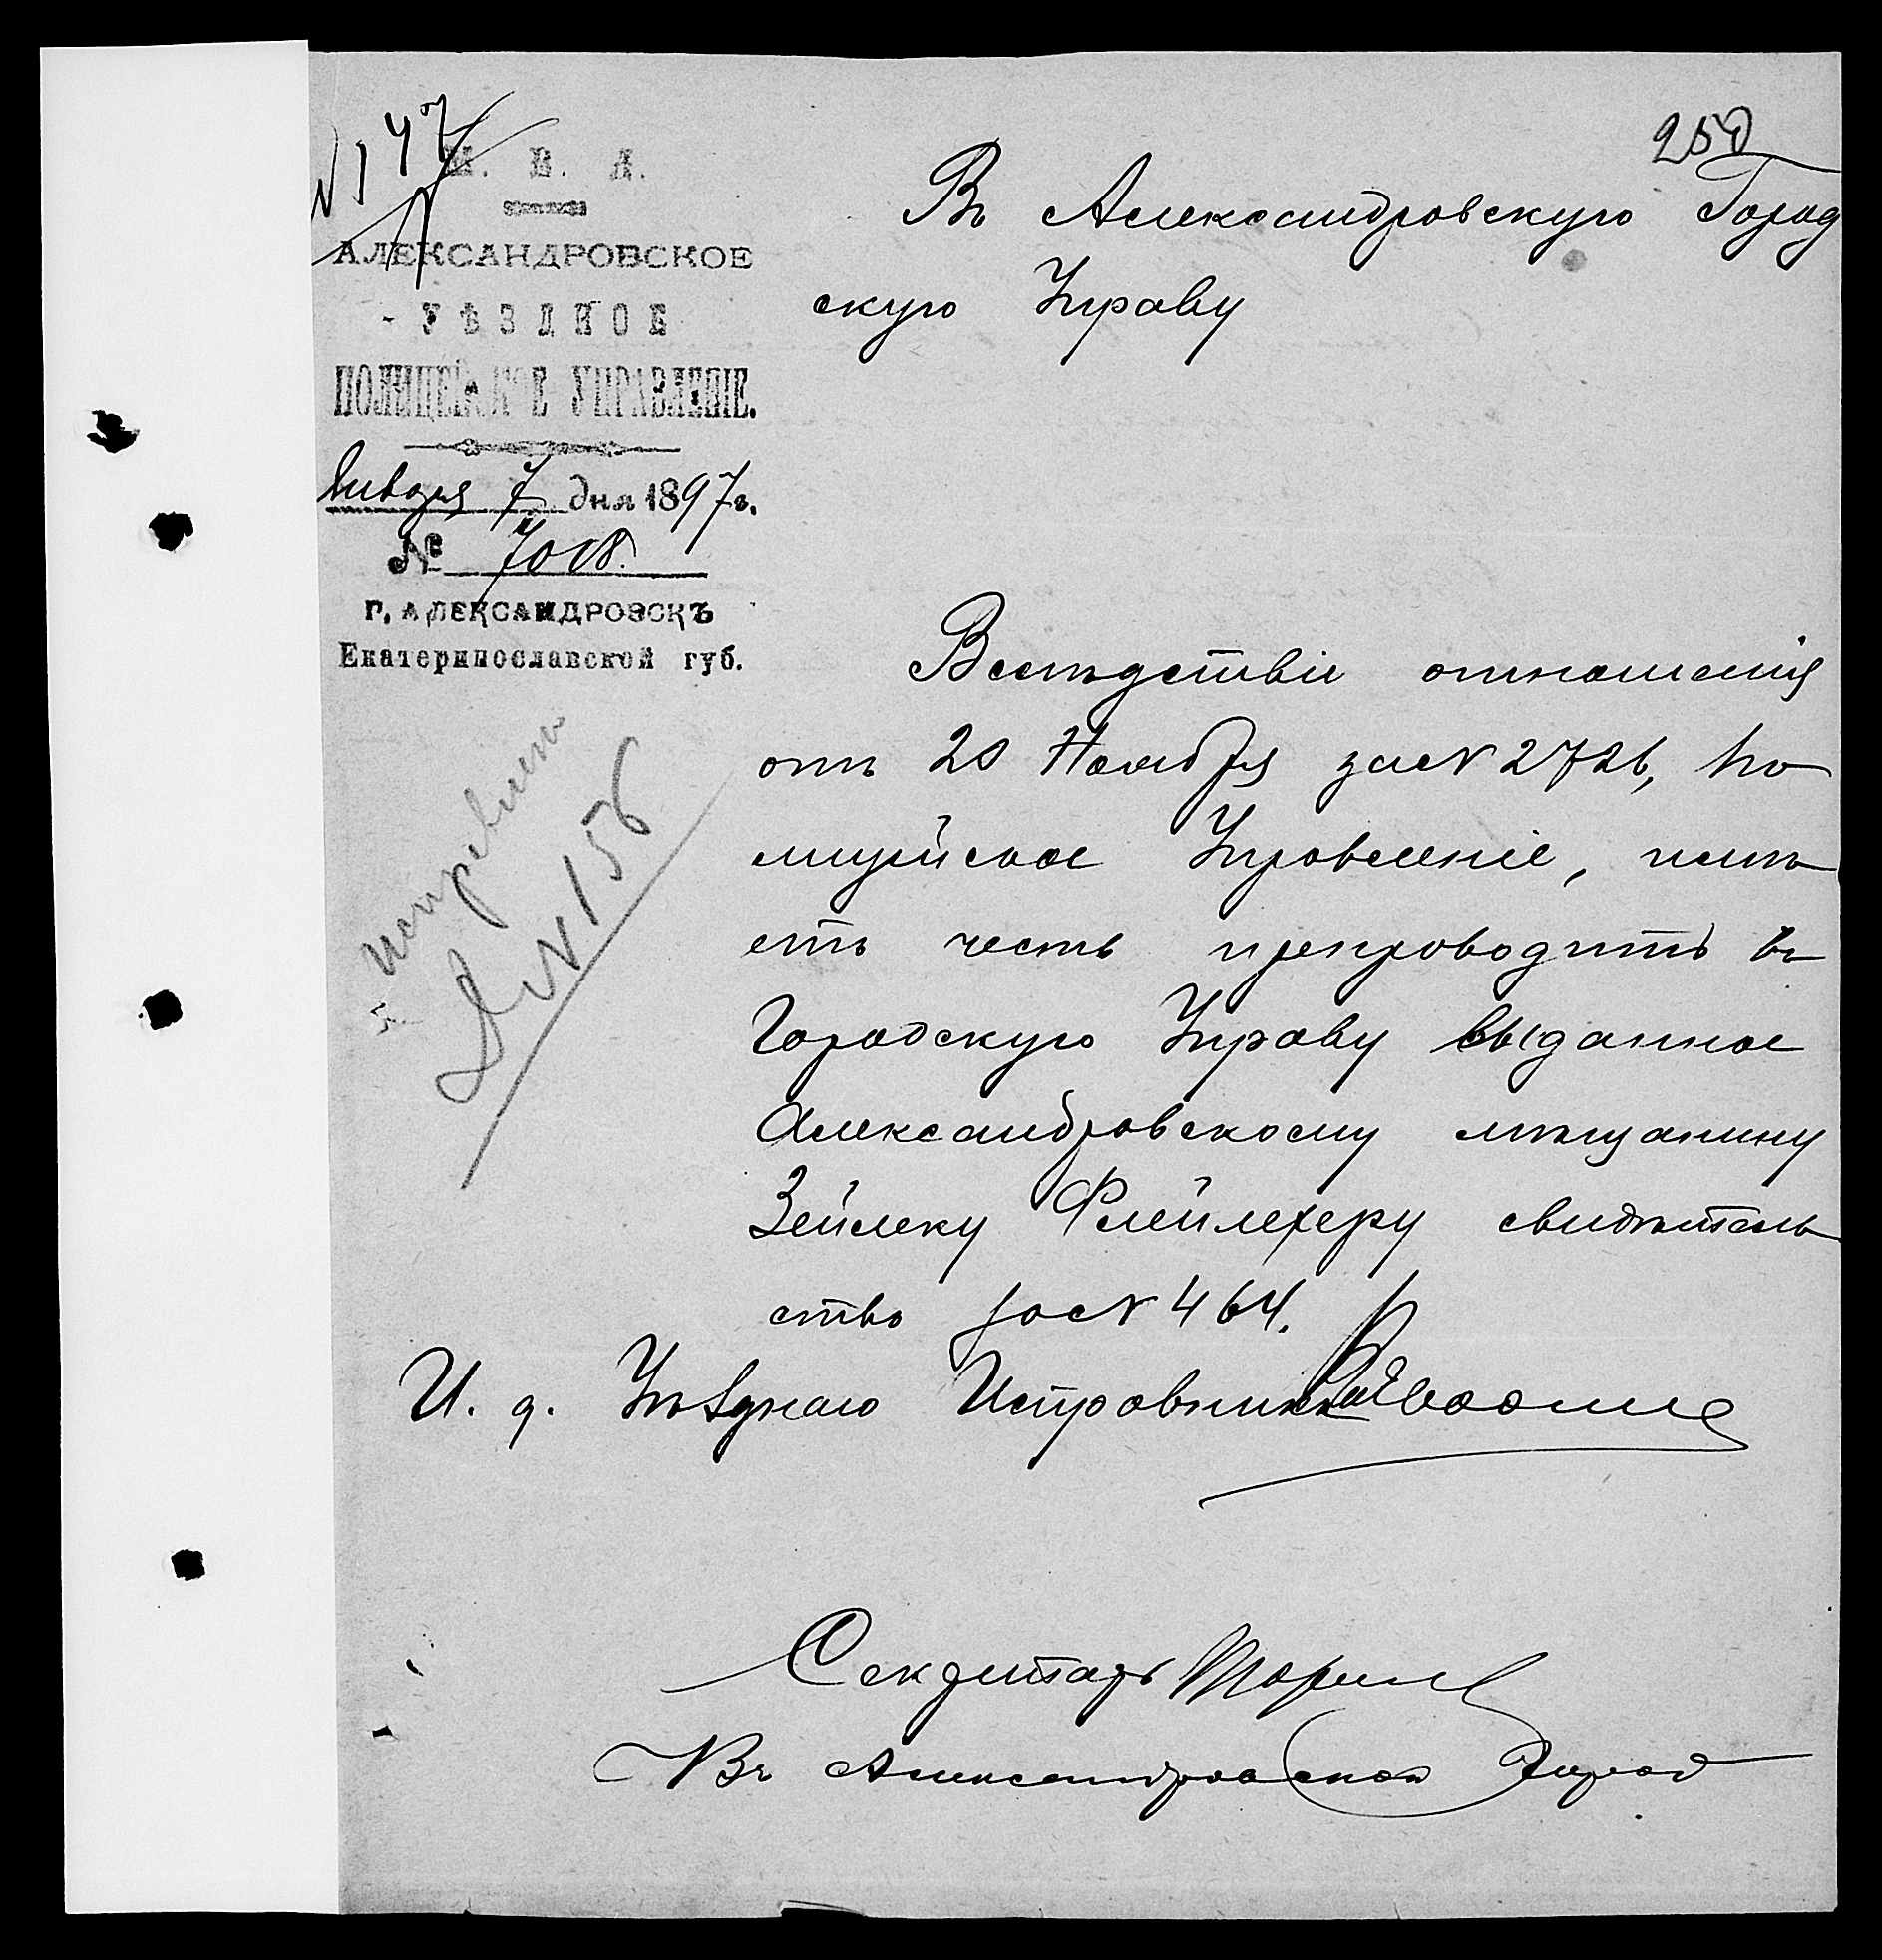 N 147
250
М. В. Д.
АЛЕКСАНДРОВСКОЕ
УѢЗДНОЕ
ПОЛИЦЕЙСКОЕ УПРАВЛЕНІЕ.
Января 7 дня 1897 г.
№ 7018.
Г. АЛЕКСАНДРОВСКЪ
Екатеринославской губ.
Въ Александровскую Город
скую Управу
Вслѣдствіи отношенія
отъ 20 Ноября за № 2726, По
лицейское Управленіе, имѣ
етъ честь препроводить въ
Городскую Управу выданное
Александровскому мѣщанину
Зейлеку Флейлехеру свидѣтель
ство за № 464.
N 156
И. д. Уѣзднаго Исправника
Секретарь
Въ Александровской Город